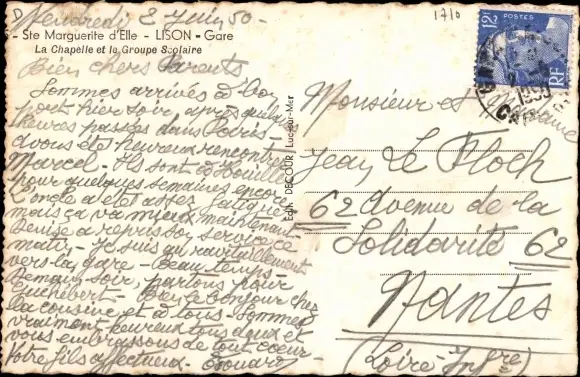 Vendredi 2 Juin 50 -
1710
- Ste Marguerite d'Elle - LISON - Gare
La Chapelle et le Groupe Scolaire
Bien chers Parents
Sommes arrivés à bon
port hier soir, après quelques
heures passées dans Paris -
avons été heureux rencontrer
Marcel - Ils sont à
pour quelques semaines encore
L'oncle a été assez fatigué
mais ça va mieux maintenant
Denise a repris son service ce
matin - Je suis au ravitaillement
vers la gare - Beau temps -
Demain soir, partons pour
- Bien le bonjour chez
la cousine et à tous - Sommes
vraiment heureux tous deux et
vous embrassons de tout coeur
Votre fils affectueux - Edouard
Edit. DECOUR Luc-sur-Mer
12F
POSTES
RF
1950
Monsieur et Madame
Jean Le Floch
62 Avenue de la
Solidarité 62
Nantes
(Loire-Infre)